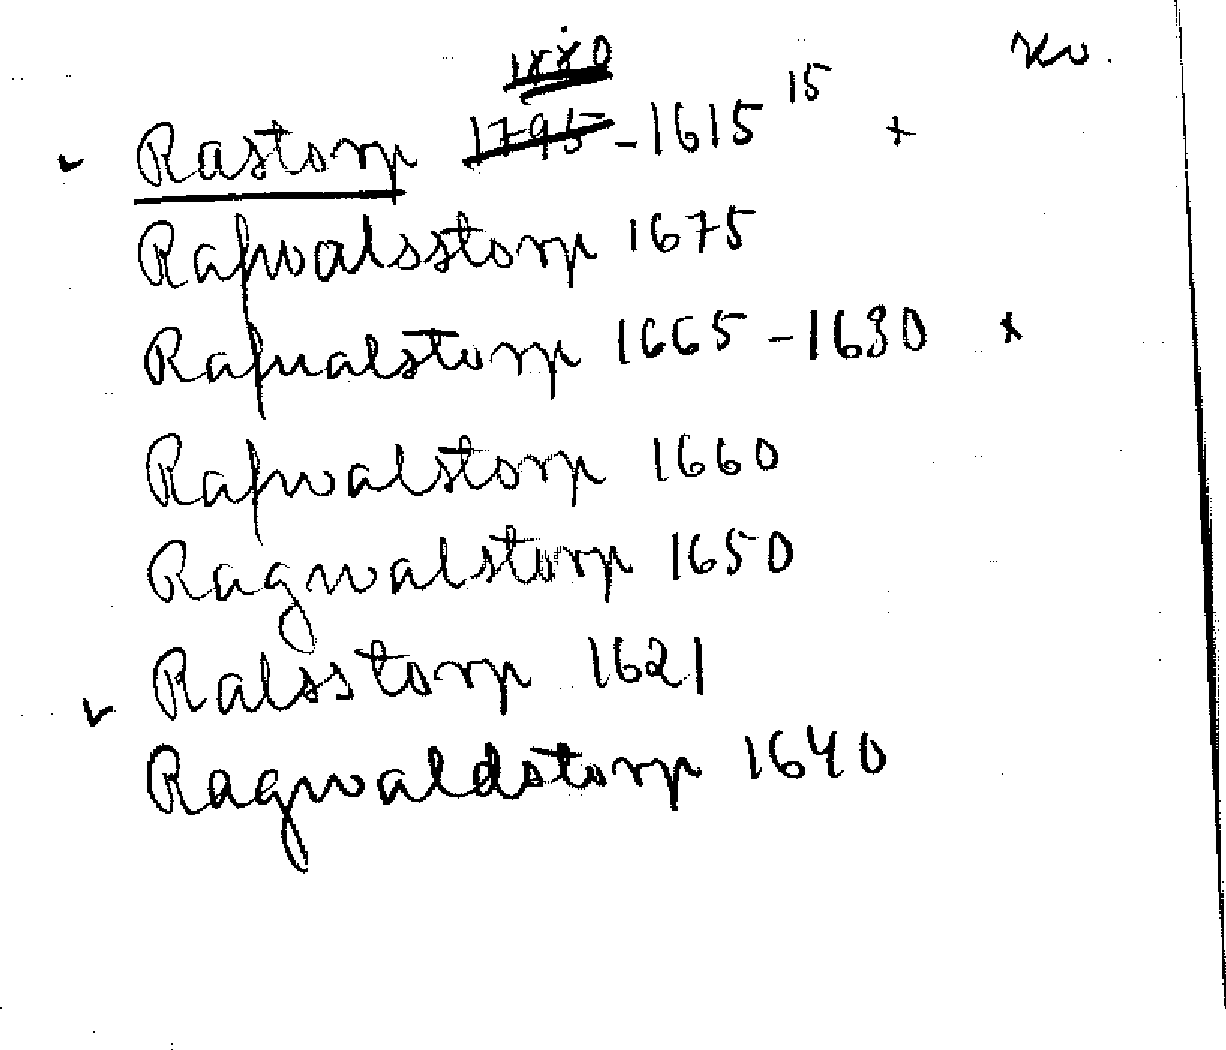 1880 kv.
Rastorp 1795-1615 15 +
Rafwalsstorp 1675
Rafualstorp 1665-1630 x
Rafwalstorp 1660
Ragwalstorp 1650
Ralsstorp 1621
Ragwaldstorp 1640